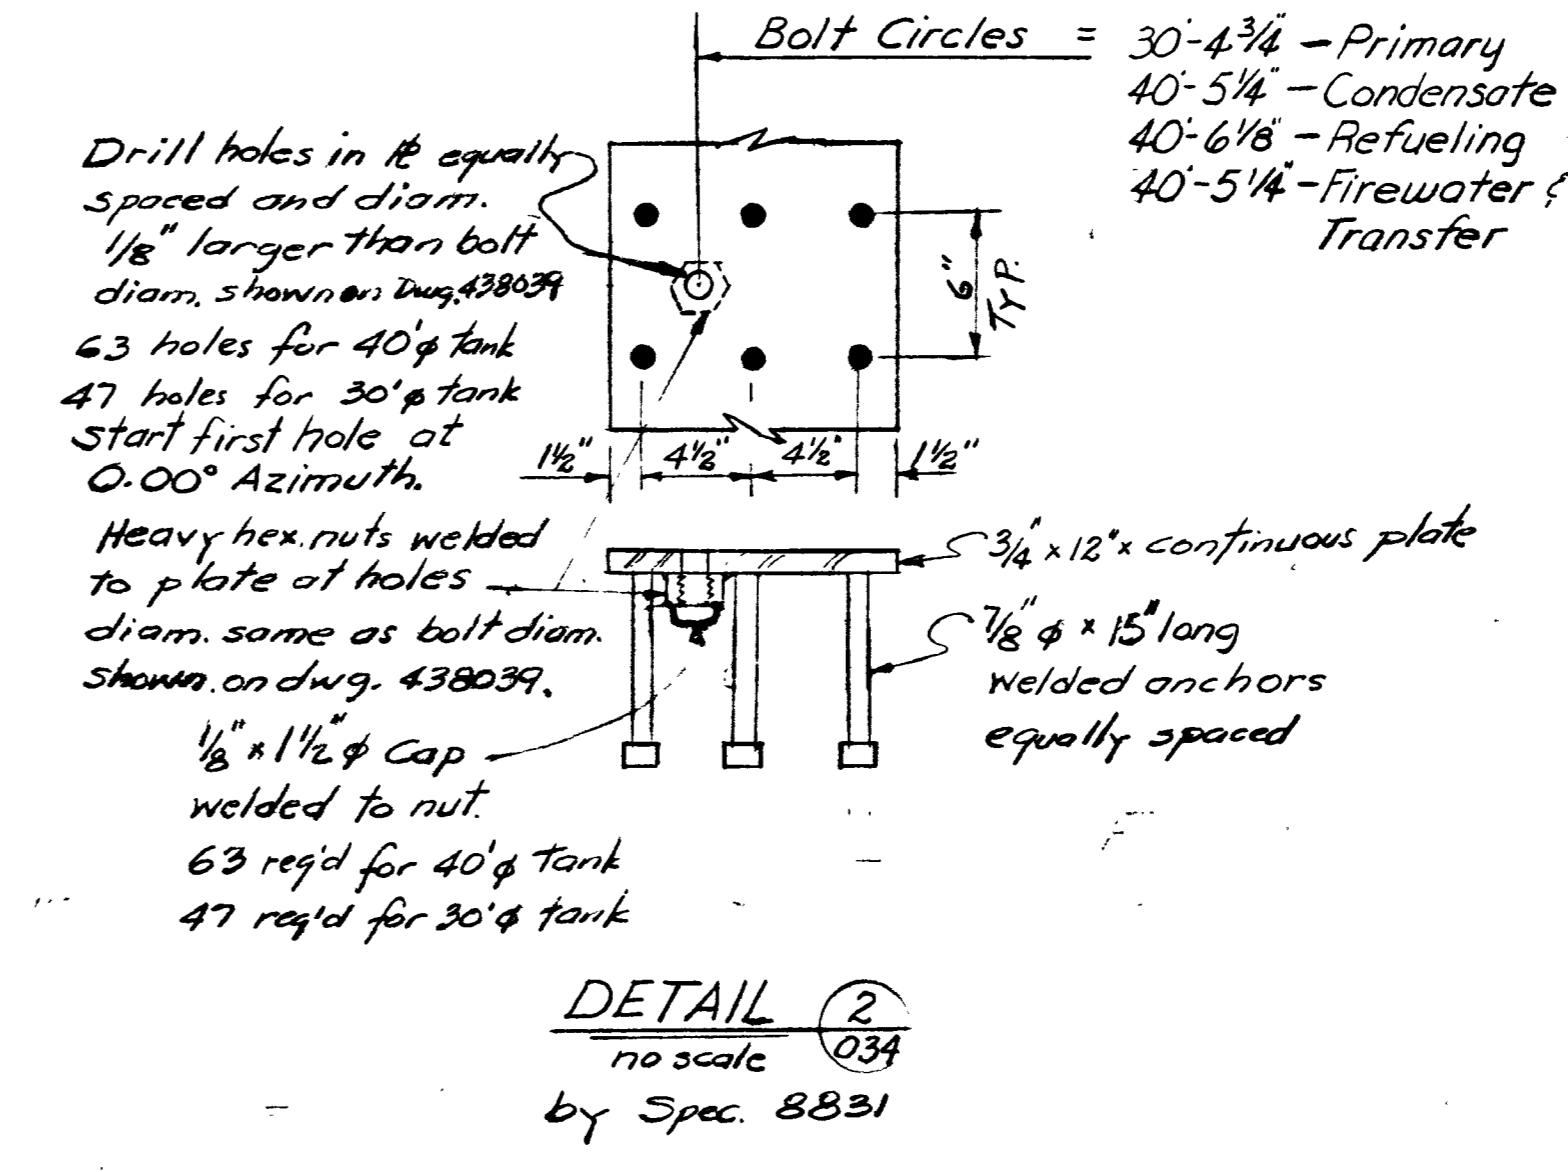 Bolt Circles = 30'-4 3/4" - Primary
40'-5 1/4" - Condensate
40'-6 1/8" - Refueling
40'-5 1/4" - Firewater &
Transfer
Drill holes in ℄ equally
spaced and diam.
1/8" larger than bolt
diam. shown on Dwg. 438039
63 holes for 40'φ tank
47 holes for 30'φ tank
start first hole at
0.00° Azimuth.
6" TYP.
1 1/2" 4 1/2" 4 1/2" 1 1/2"
Heavy hex. nuts welded
to plate at holes
diam. same as bolt diam.
shown. on dwg. 438039.
3/4" x 12" x continuous plate
7/8" φ x 15" long
welded anchors
equally spaced
1/8" x 1 1/2" φ Cap
welded to nut.
63 req'd for 40'φ tank
47 req'd for 30'φ tank
DETAIL 2
034
no scale
by Spec. 8831